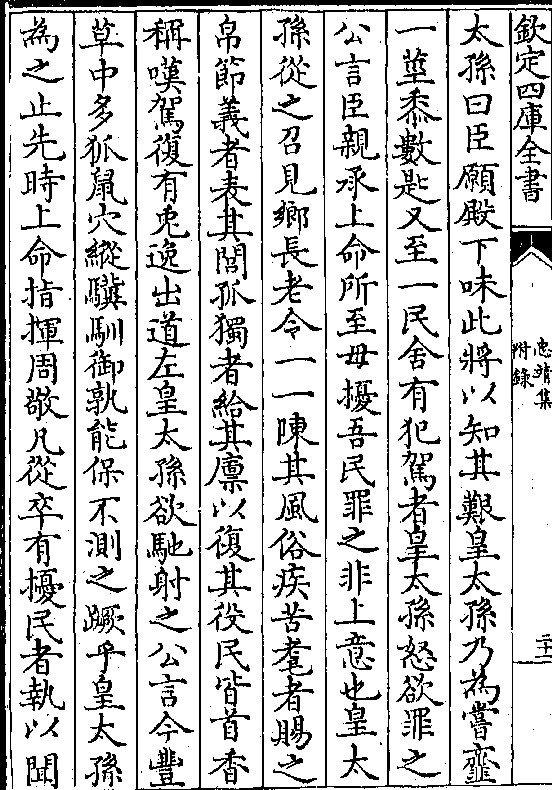 欽定四庫全書
忠靖集
附錄
二十一
太孫曰臣願殿下味此將以知其艱皇太孫乃為嘗虀
一莖黍數匙又至一民舍有犯駕者皇太孫怒欲罪之
公言臣親承上命所至毋擾吾民罪之非上意也皇太
孫從之召見鄉長老令一一陳其風俗疾苦耄者賜之
帛節義者表其閭孤獨者給其廩以復其役民皆首香
稱嘆駕復有兎逸出道左皇太孫欲馳射之公言今豐
草中多狐䑕穴縱驥馴御孰能保不測之蹶乎皇太孫
為之止先時上命指揮周敬凡從卒有擾民者執以聞